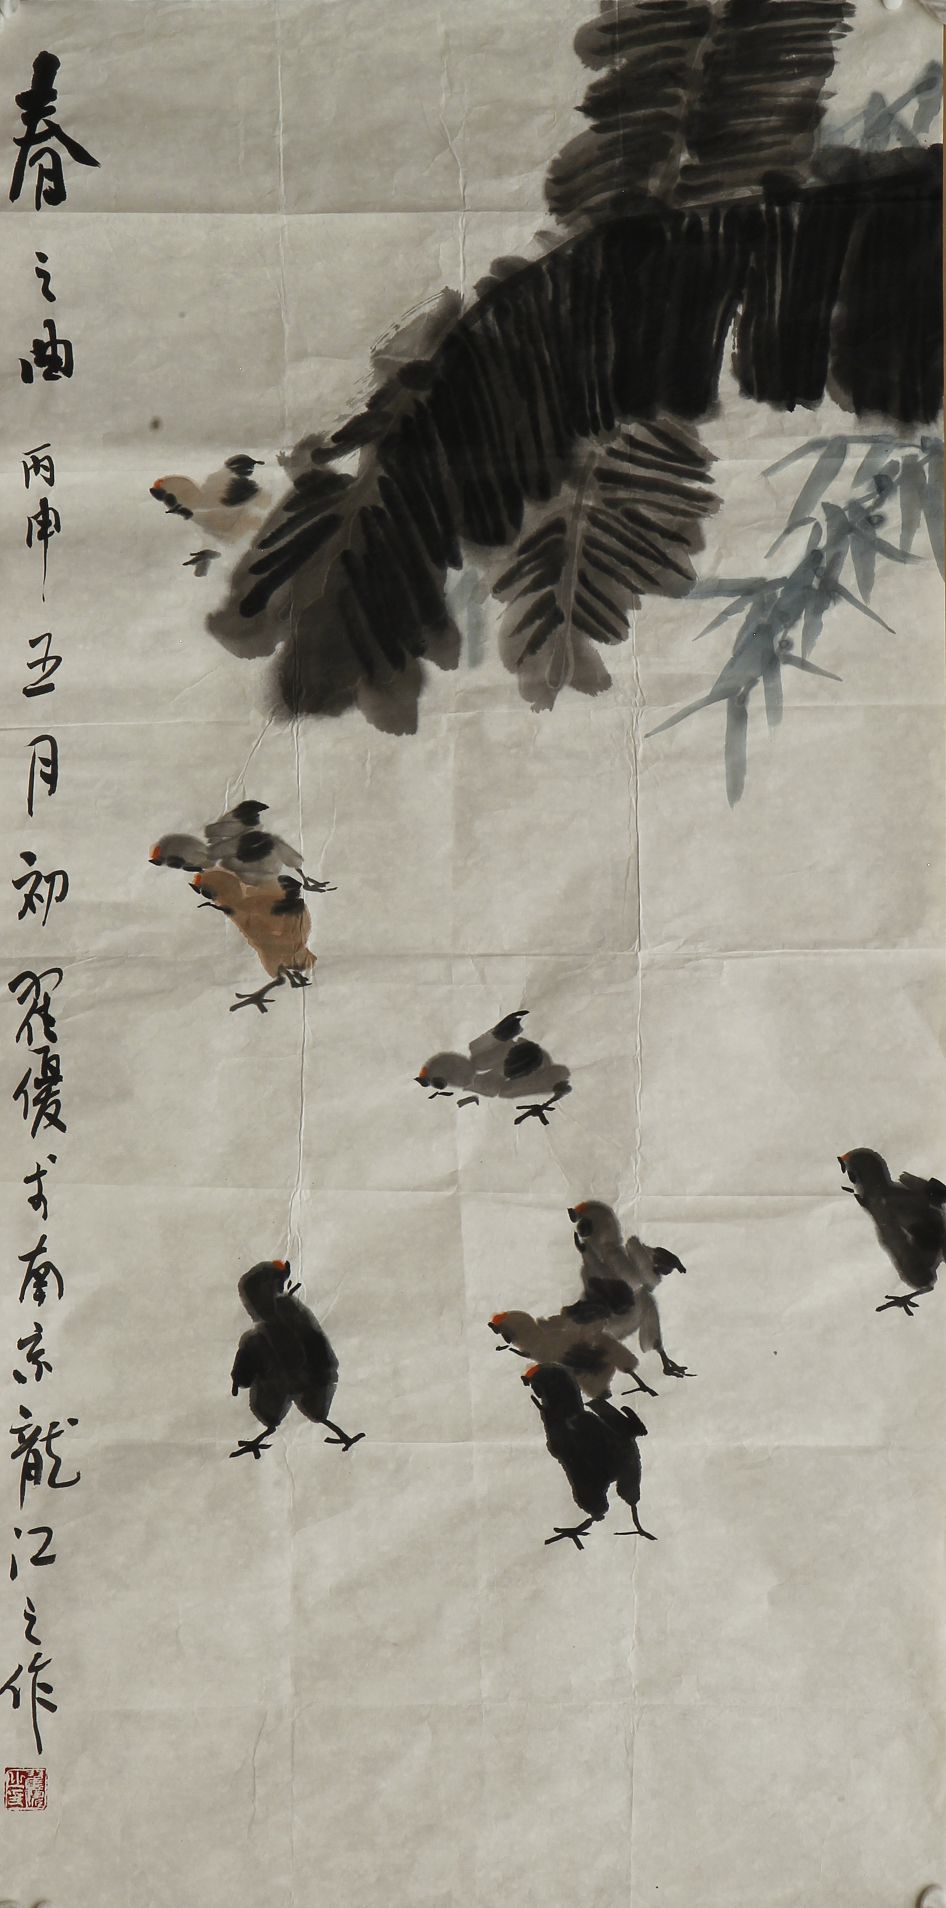 春之曲 丙申五月初翟優於南京龍江之作